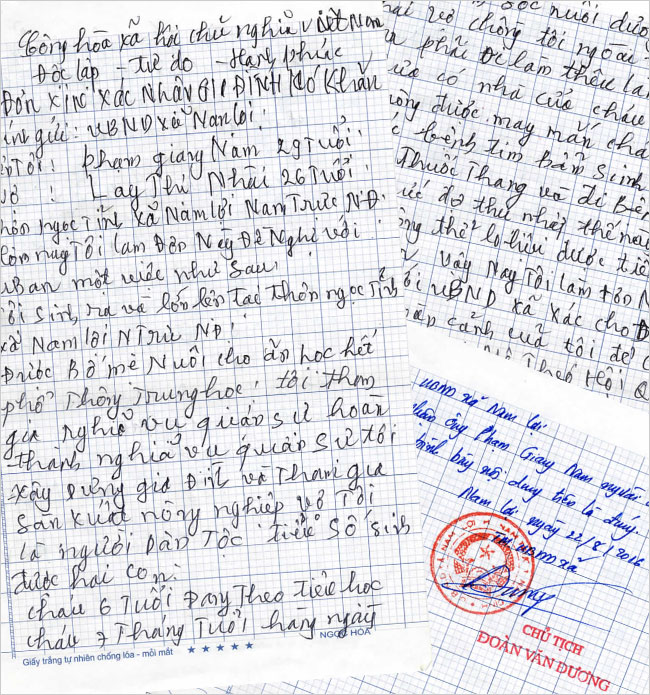 Cộng hòa xã hội chủ nghĩa việt Nam
Độc lập - tự do - Hạnh phúc
Đơn xin xác nhận gia đình khó khăn
kính gửi: UBND xã Nam lợi!
Tên Tôi: phạm giang Nam 29 Tuổi.
vợ: Lay Thị Nhái 26 Tuổi.
thôn ngọc Tỉnh xã Nam lợi Nam Trực NĐ.
hôm nay Tôi làm Đơn Này Đề Nghị với
uỷ ban một việc như sau:
Tôi sinh ra và lớn lên tại thôn ngọc Tỉnh
xã Nam lợi N Trực NĐ.
Được Bố mẹ Nuôi cho ăn học hết
phổ Thông Trung học. tôi tham
gia nghĩa vụ quân sự hoàn
thành nghĩa vụ quân sự tôi
xây dựng gia Đình và Tham gia
sản xuất nông nghiệp vợ Tôi
là người Dân Tộc thiểu số sinh
được hai con:
cháu 6 Tuổi Đang Theo tiểu học
cháu 7 Tháng Tuổi hàng ngày
Giấy trắng tự nhiên chống lóa - mỏi mắt
NGỌC HÒA
sóc nuôi dưỡng
hai vợ chồng tôi ngoài
phải đi làm thêu
có nhà cửa cháu
không được may mắn cháu
bệnh tim bẩm sinh
Thuốc Thang và đi Bệ
đỡ thu nhập thế nào
không thể lo liệu được tiề
vậy Nay Tôi làm đơn N
UBND xã xác cho
hoàn cảnh của tôi để
Theo Hội
UBND xã Nam Lợi
nhận ông Phạm Giang Nam
trình bày nội dung trên là đúng.
Nam Lợi ngày 22/8/2016
TM UBND xã
CHỦ TỊCH
ĐOÀN VĂN DƯƠNG